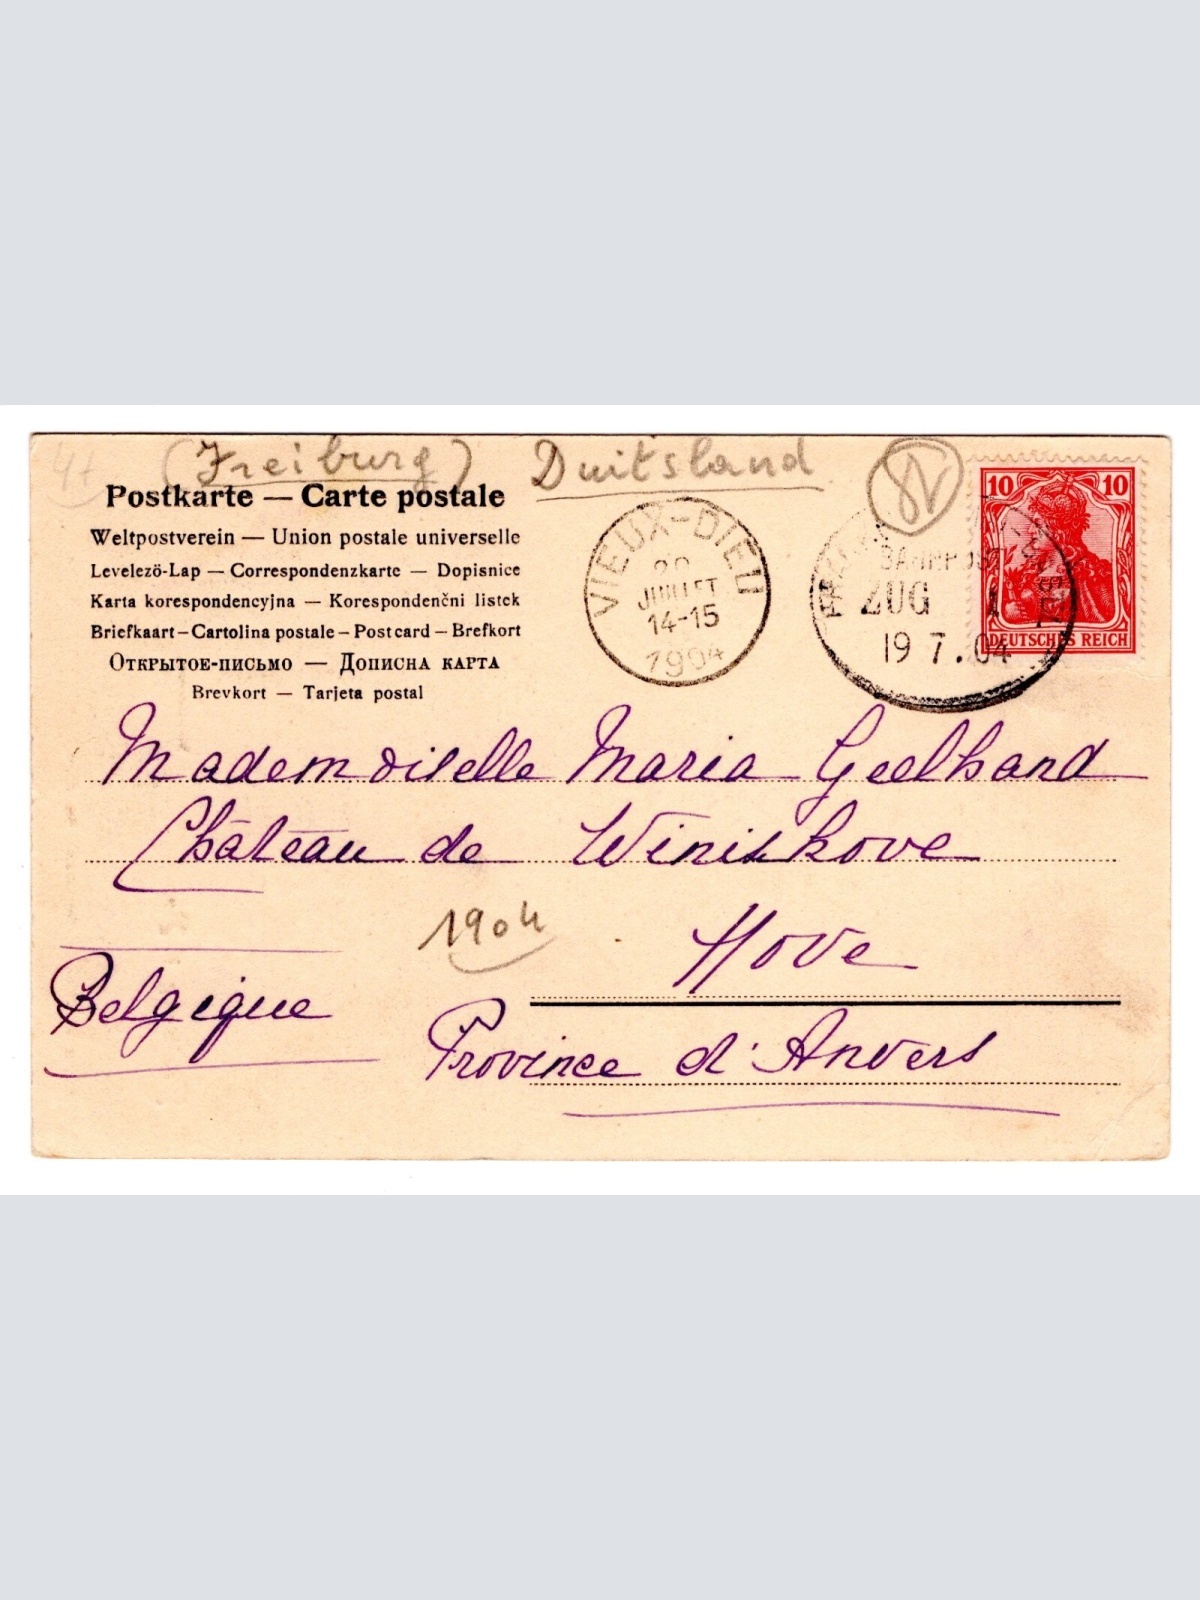 (Freiburg) Duitsland
Postkarte — Carte postale
Weltpostverein — Union postale universelle
Levelezö-Lap — Correspondenzkarte — Dopisnice
Karta korespondencyjna — Korespondenčni listek
Briefkaart – Cartolina postale – Post card – Brefkort
Открытое-письмо — Дописна карта
Brevkort — Tarjeta postal
VIEUX-DIEU
20
JUILLET
14-15
1904
BAHNPOST
ZUG 1
19 7.04
10 10
DEUTSCHES REICH
Mademoiselle Maria Geelhand
Château de Winishove
1904
Hove
Belgique
Province d'Anvers